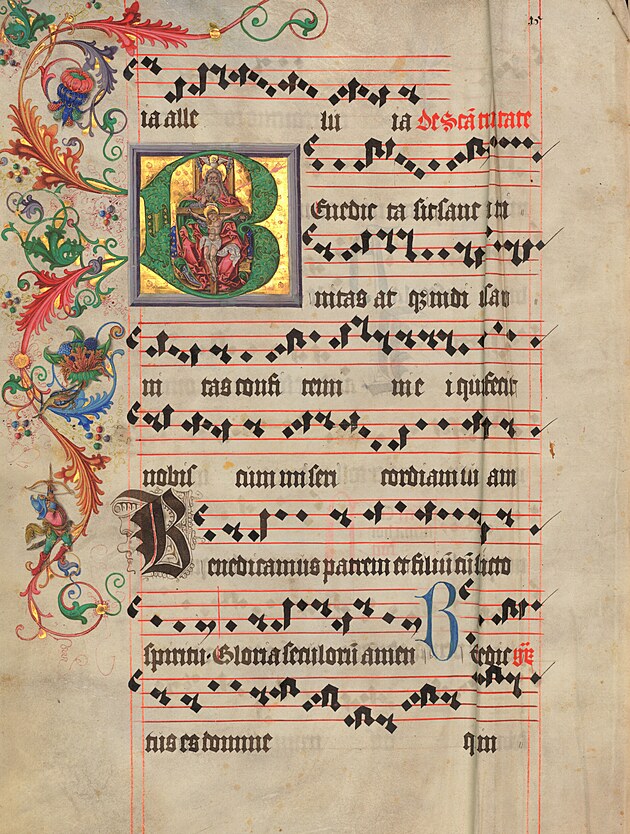 ia alle lu ia de Scā trinitate
Benedic ta sit sanc ta tri
nitas at qз indi visa u
ni tas confi temi ei quia fecit
nobis cum miseri cordiam su am
Benedicamus patrem et filiū cū sācto
spiritu Gloria seculorū amen Benedic
tus es domine qui